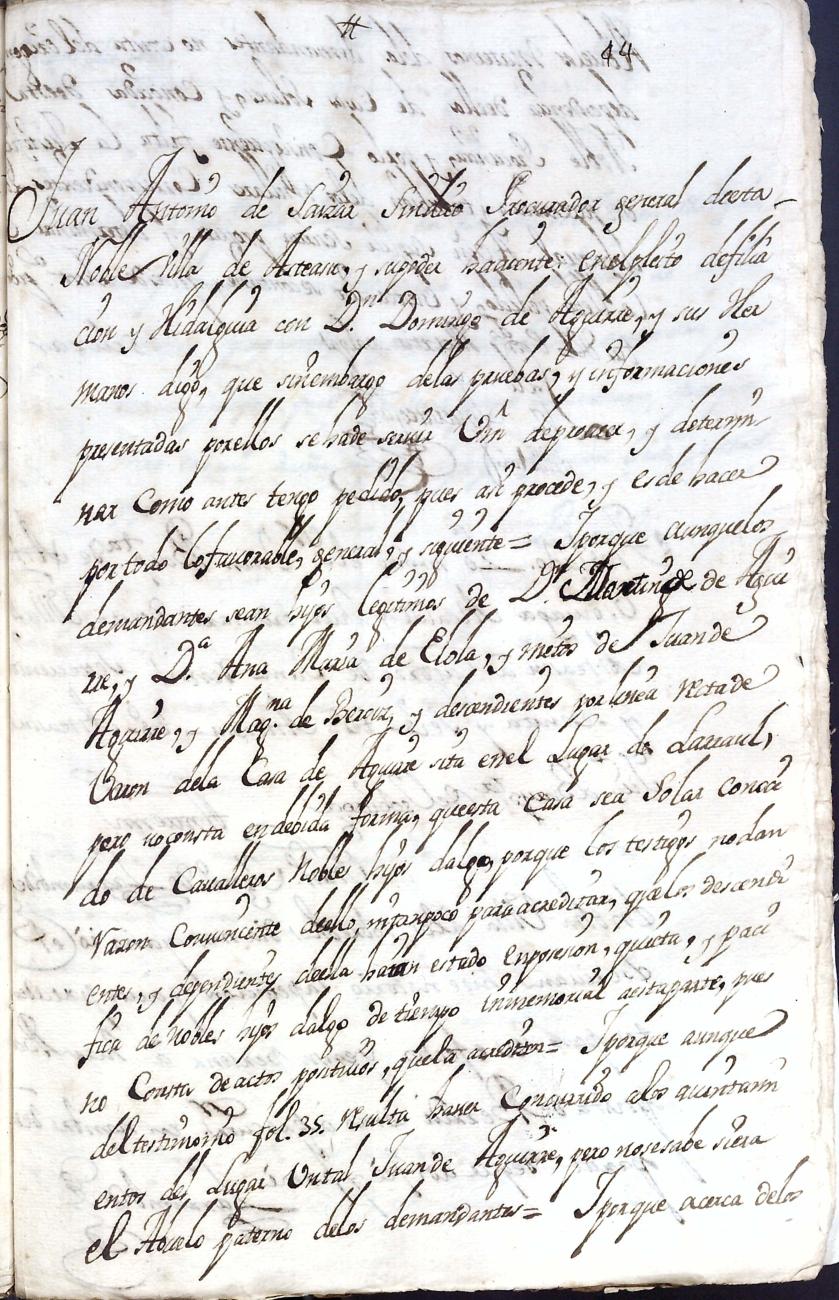 44
Juan Antonio de Saizar Sindico Procurador general deesta
Noble Villa de Asteasu, y supoder haviente, enelpleito defilia
cion y Hidalguia con D.n Domingo de Aguirre, y sus Her
manos digo, que sinembargo delas pruebas, y informaciones
presentadas porellos sehade servir Vm deproveer, y determi
nar Como antes tengo pedido, pues asi procede, y esde hacer
portodo lofavorable, general, y siguiente = Iporque aunquelos
demandantes sean hijos legitimos de D.n Martin de Agui
rre, y D.a Ana Maria de Elola, y nietos de Juande
Aguirre, y Mag.na de Beroiz, y descendientes porlinea rectade
Varon dela Casa de Aguirre sita enel Lugar de Larraul,
pero noconsta endebida forma, queesta Casa sea Solar Conoci
do de Cavalleros Nobles hijos dalgo, porque los testigos nodan
razon Convincente deello, nitanpoco paraacreditar, quelos descendi
entes, y dependientes deella haian estado enposesion, quieta, y paci
fica de Nobles hijos dalgo de tiempo inmemorial aestaparte, pues
no Consta deactos positivos, quela acrediten = Iporque aunque
deltestimonio fol. 35. resulta haver Concurrido alos aiuntami
entos del Lugar Untal Juande Aguirre, pero nosesabe siera
el Abuelo paterno delos demandantes = Iporque acerca delos